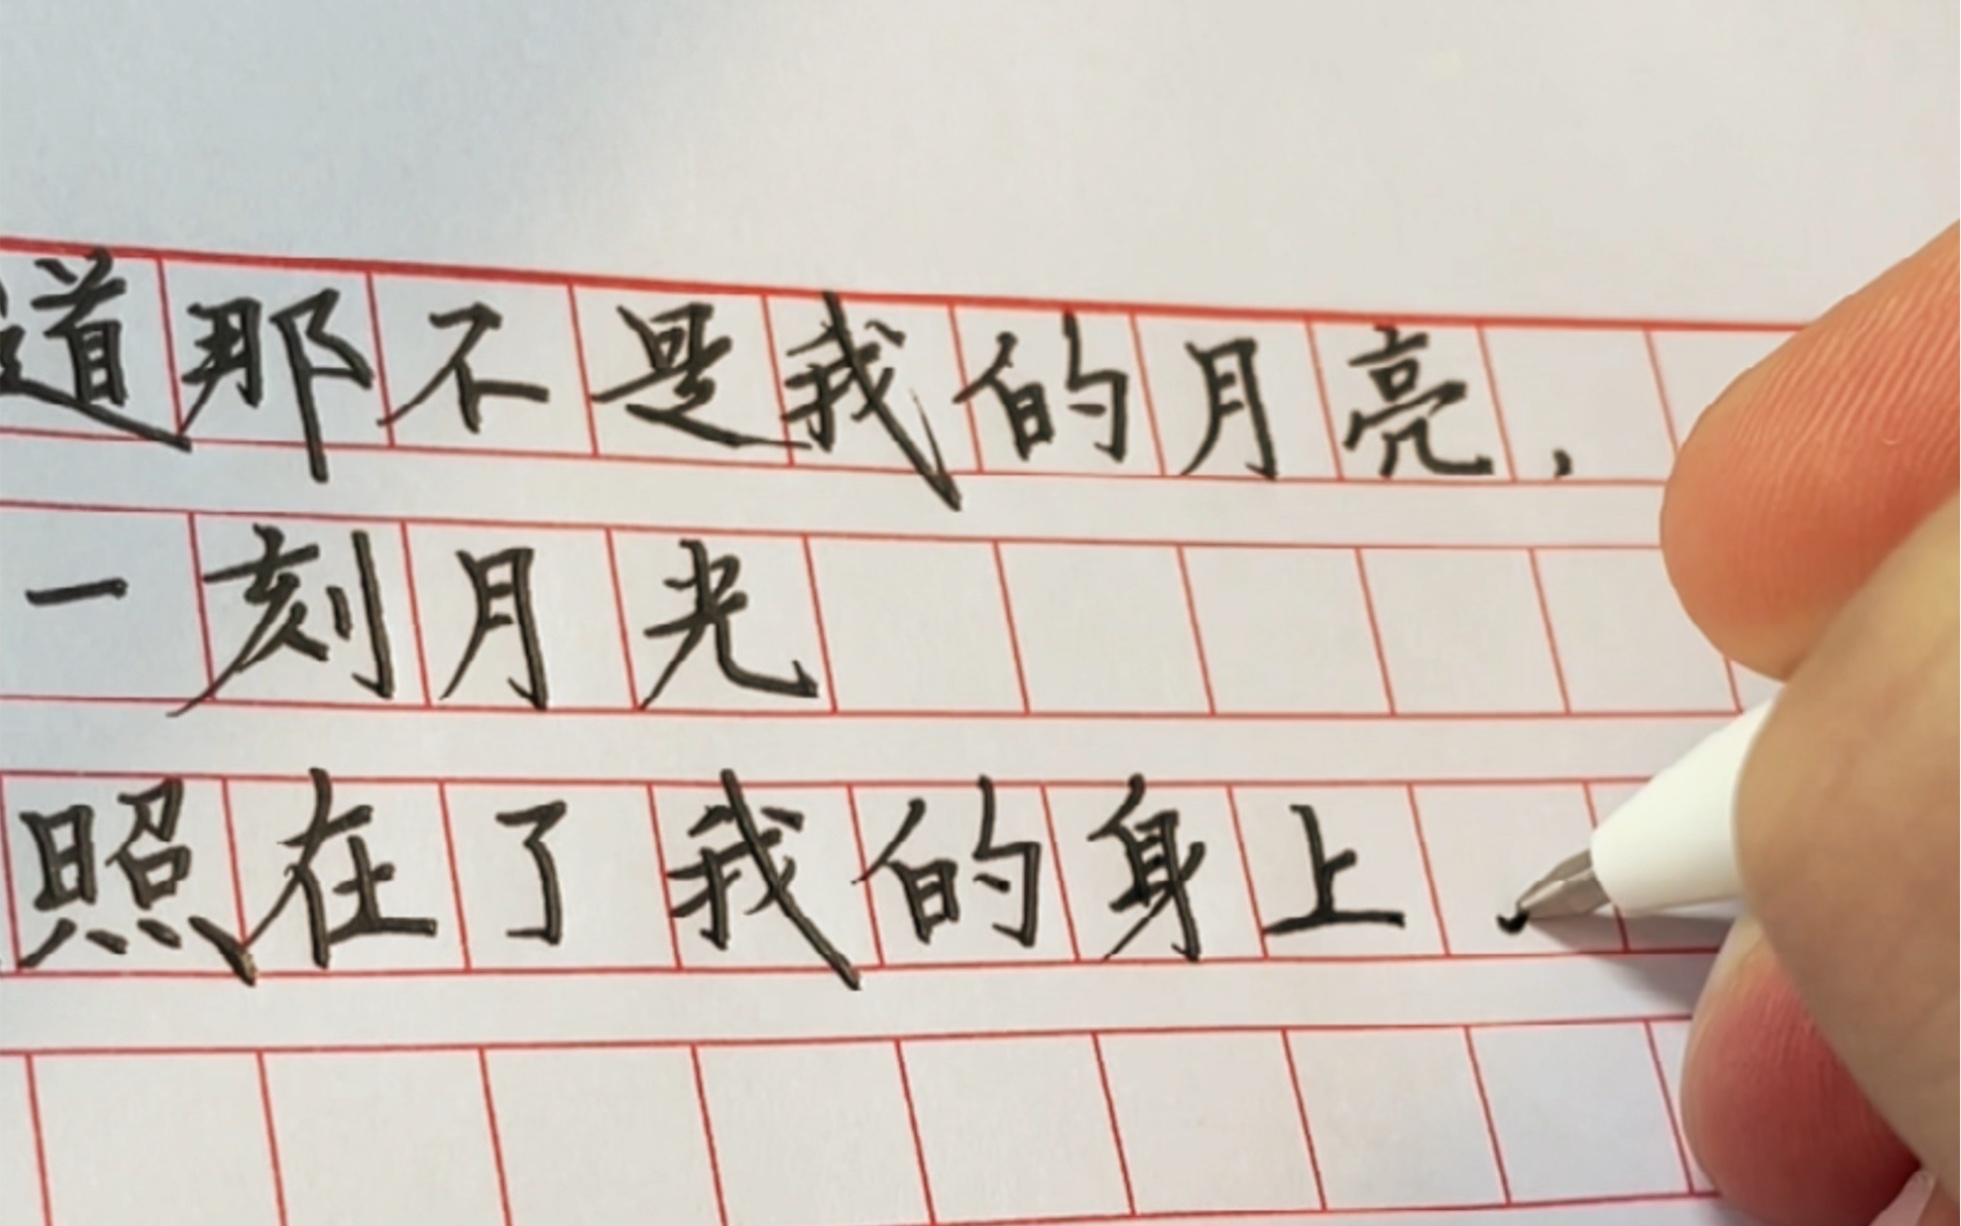 道那不是我的月亮,
一刻月光
照在了我的身上.